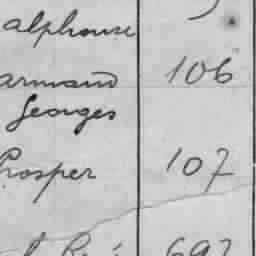 alphonse
armand 106
Georges
Prosper 107